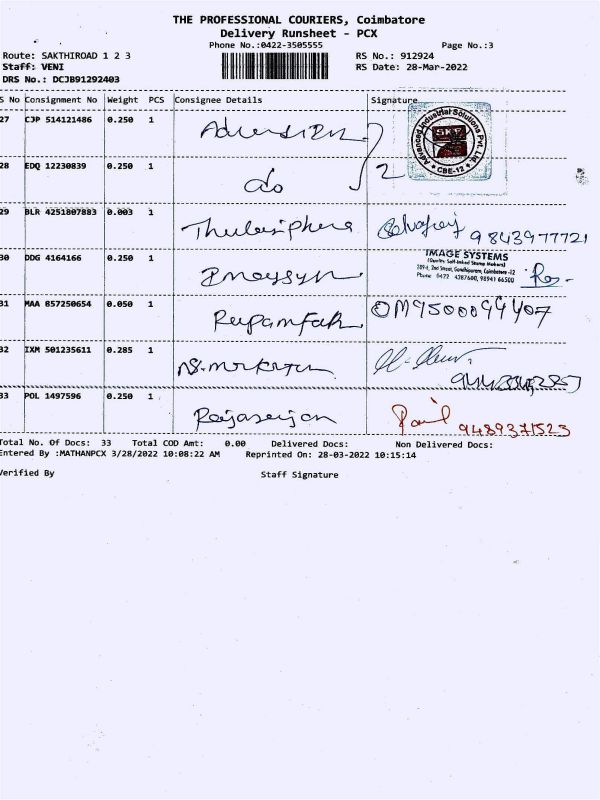 THE PROFESSIONAL COURIERS, Coimbatore
Delivery Runsheet - PCX
Phone No.:0422-3505555
Page No.:3
Route: SAKTHIROAD 1 2 3
RS No.: 912924
Staff: VENI
RS Date: 28-Mar-2022
DRS No.: DCJB91292403
S No Consignment No Weight PCS Consignee Details Signature
27 CJP 514121486 0.250 1
Advanced Industrial Solutions Pvt. Ltd.
CBE-12
28 EDQ 12230839 0.250 1 do 2
29 BLR 4251807883 0.003 1
9843977721
30 DDG 4164166 0.250 1
IMAGE SYSTEMS
(Quality Self-Inked Stamp Makers)
2nd Street, Gandhipuram, Coimbatore -12
Phone 0422 4387600, 98941 66500
31 MAA 857250654 0.050 1
32 IXM 501235611 0.285 1
33 POL 1497596 0.250 1
9489371523
Total No. Of Docs: 33 Total COD Amt: 0.00 Delivered Docs: Non Delivered Docs:
Entered By :MATHANPCX 3/28/2022 10:08:22 AM Reprinted On: 28-03-2022 10:15:14
Verified By Staff Signature